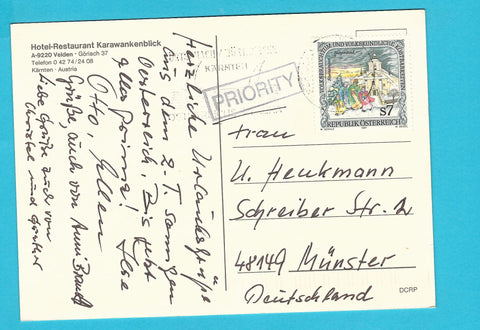 Hotel-Restaurant Karawankenblick
A-9220 Velden · Görisch 37
Telefon 0 42 74 / 24 08
Kärnten · Austria
Herzliche Urlaubsgrüße
aus dem z. T. sonnigen
Österreich. Bis jetzt
alles prima!
Otto, Ellen
Grüße, auch von Anni Brandt
Liebe Grüße auch von
Christel und Günter
KÄRNTEN
PRIORITY
VOLKSBRAUCHTUM UND VOLKSKUNDLICHE KOSTBARKEITEN
S7
REPUBLIK ÖSTERREICH
Frau
U. Henkmann
Schreiber Str. 2
48149 Münster
Deutschland
DCRP